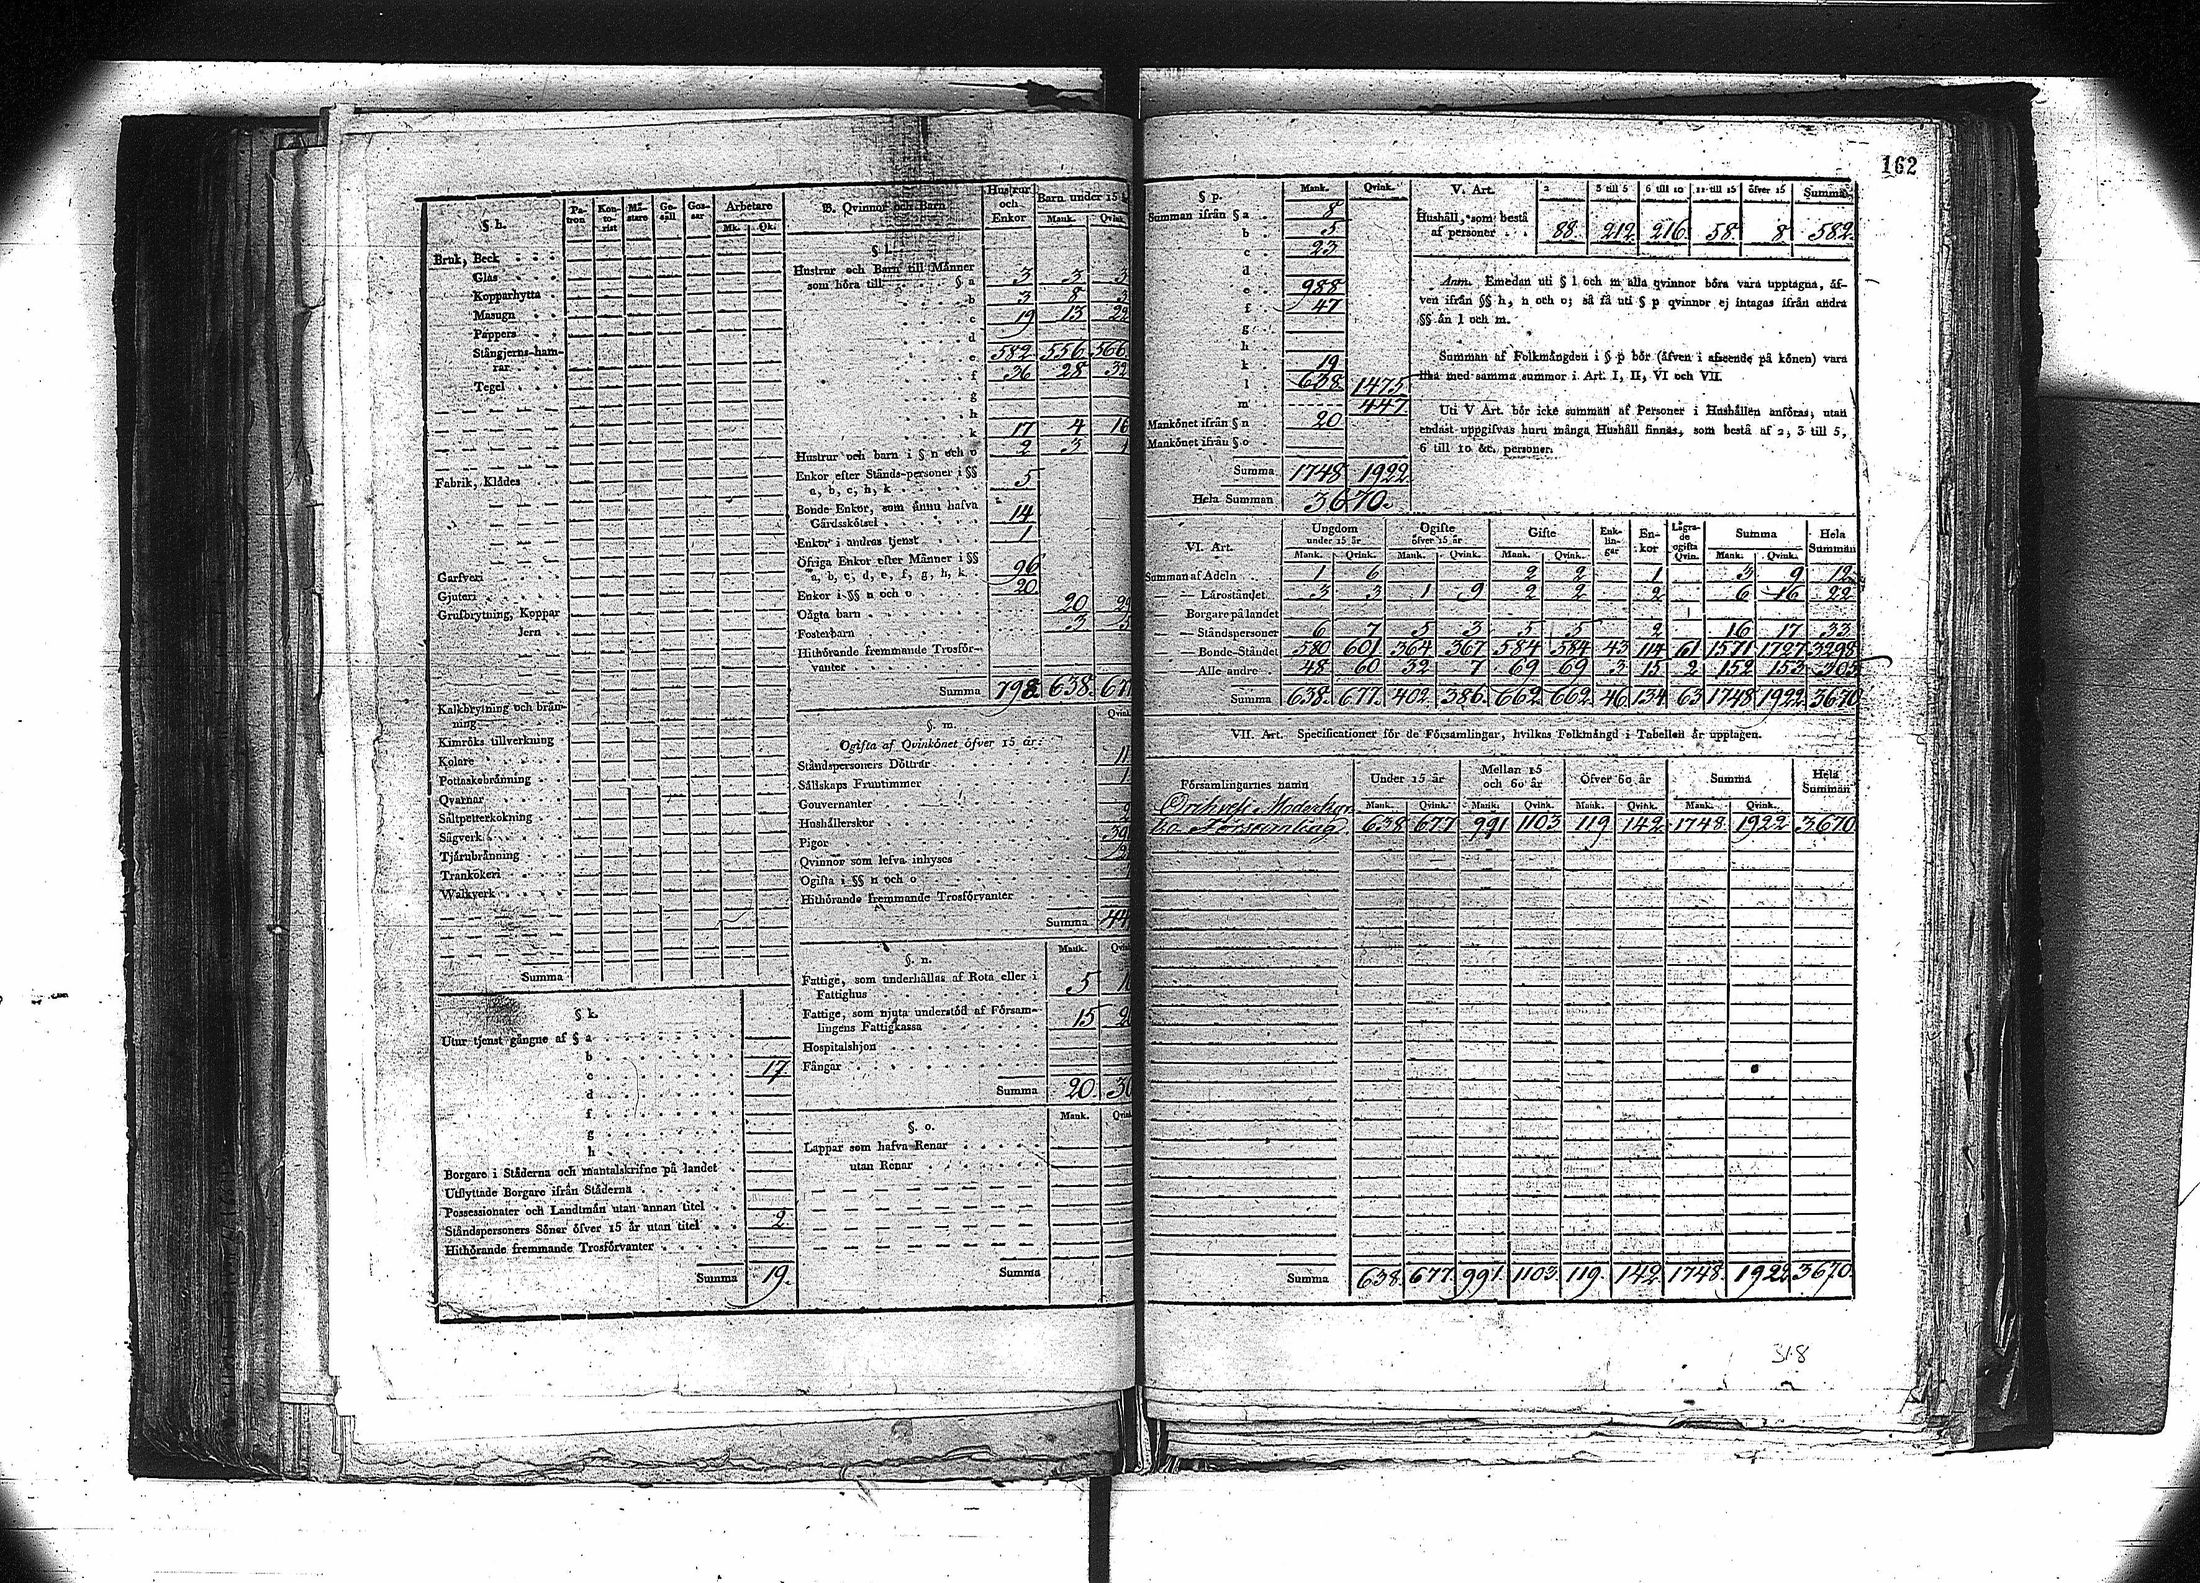 162
§. h.
Pa-
tron
Kon-
to-
rist
Mä-
stare
Ge-
säll
Gos-
sar
Arbetare
Mk. Qk.
Bruk, Beck
Glas
Kopparhytta
Masugn
Pappers
Stångjerns-ham-
rar
Tegel
Fabrik, Klädes
Garfveri
Gjuteri
Grufbrytning, Koppar
Jern
Kalkbrytning och brän-
ning
Kimröks tillverkning
Kolare
Pottaskebränning
Qvarnar
Saltpetterkokning
Sågverk
Tjärubränning
Trankokeri
Walkverk
Summa
§ k.
Utur tjenst gångne af § a
b
c 17
d
f
g
h
Borgare i Städerna och mantalskrifne på landet
Utflyttade Borgare ifrån Städerna
Possessionater och Landtmän utan annan titel
Ståndspersoners Söner öfver 15 år utan titel 2
Hithörande fremmande Trosförvanter
Summa 19.
B. Qvinnor och Barn
Hustrur
och
Enkor
Barn under 15
Mank. Qvink.
§ l.
Hustrur och Barn till Männer
som höra till § a 3 3 3
b 3 8 3
c 19 13 22
d
e 582 556 566
f 36 28 32
g
h
k 17 4 16
Hustrur och barn i § n och o 2 3 1
Enkor efter Stånds-personer i §§
a, b, c, h, k 5
Bonde Enkor, som ännu hafva
Gårdsskötsel 14
Enkor i andras tjenst 1
Öfriga Enkor efter Männer i §§
a, b, c, d, e, f, g, h, k 96
Enkor i §§ n och o 20
Oägta barn 20
Fosterbarn 3 5
Hithörande fremmande Trosför-
vanter
Summa 798 638. 677
§. m.
Qvink.
Ogifta af Qvinkönet öfver 15 år:
Ståndspersoners Döttrar 11
Sällskaps Fruntimmer 1
Gouvernanter
Hushållerskor 2
Pigor
Qvinnor som lefva inhyses
Ogifta i §§ n och o
Hithörande fremmande Trosförvanter
Summa
§. n.
Mank.
Fattige, som underhållas af Rota eller i
Fattighus 5
Fattige, som njuta understöd af Försam-
lingens Fattigkassa 15
Hospitalshjon
Fångar
Summa 20.
§. o.
Mank.
Lappar som hafva Renar
utan Renar
Summa
§ p.
Mank. Qvink.
Summan ifrån § a 8
b 5
c 23
d
e 988
f 47
g
h
k 19
l 638 1475
m 447
Mankönet ifrån § n 20
Mankönet ifrån § o
Summa 1748 1922
Hela Summan 3670.
V. Art.
2 3 till 5 6 till 10 11 till 15 öfver 15 Summa
Hushåll, som bestå
af personer 88. 212 216 58. 8 582.
Anm. Emedan uti § l och m alla qvinnor böra vara upptagna, äf-
ven ifrån §§ h, n och o; så få uti § p qvinnor ej intagas ifrån andra
§§ än l och m.
Summan af Folkmängden i § p bör (äfven i afseende på könen) vara
lika med samma summor i Art. I, II, VI och VII.
Uti V Art. bör icke summan af Personer i Hushållen anföras, utan
endast uppgifvas huru många Hushåll finnas, som bestå af 2, 3 till 5,
6 till 10 &c. personer.
VI. Art.
Ungdom
under 15 år
Ogifte
öfver 15 år
Gifte
Enk-
lin-
gar
En-
kor
Lägra-
de
ogifta
Qvin.
Summa
Hela
Summan
Mank. Qvink. Mank. Qvink. Mank. Qvink. Mank. Qvink.
Summan af Adeln 1 6 2 2 1 3 9 12
— — Läroståndet 3 3 1 9 2 2 2 6 16 22
Borgare på landet
— — Ståndspersoner 6 7 5 3 5 5 2 16 17 33
— — Bonde-Ståndet 580 601 364 367 584 584 43 114 61 1571 1727 3298
— Alle andre 48 60 32 7 69 69 3 15 2 152 153 305
Summa 638. 677. 402. 386. 662 662 46 134 63 1748 1922 3670
VII. Art. Specificationer för de Församlingar, hvilkas Folkmängd i Tabellen är upptagen.
Församlingarnes namn
Under 15 år
Mellan 15
och 60 år
Öfver 60 år
Summa
Hela
Summan
Mank. Qvink. Mank. Qvink. Mank. Qvink. Mank. Qvink.
Församling. 638 677 991 1103 119 142 1748. 1922 3670
Summa 638. 677. 991. 1103. 119. 142 1748. 1922 3670.
318